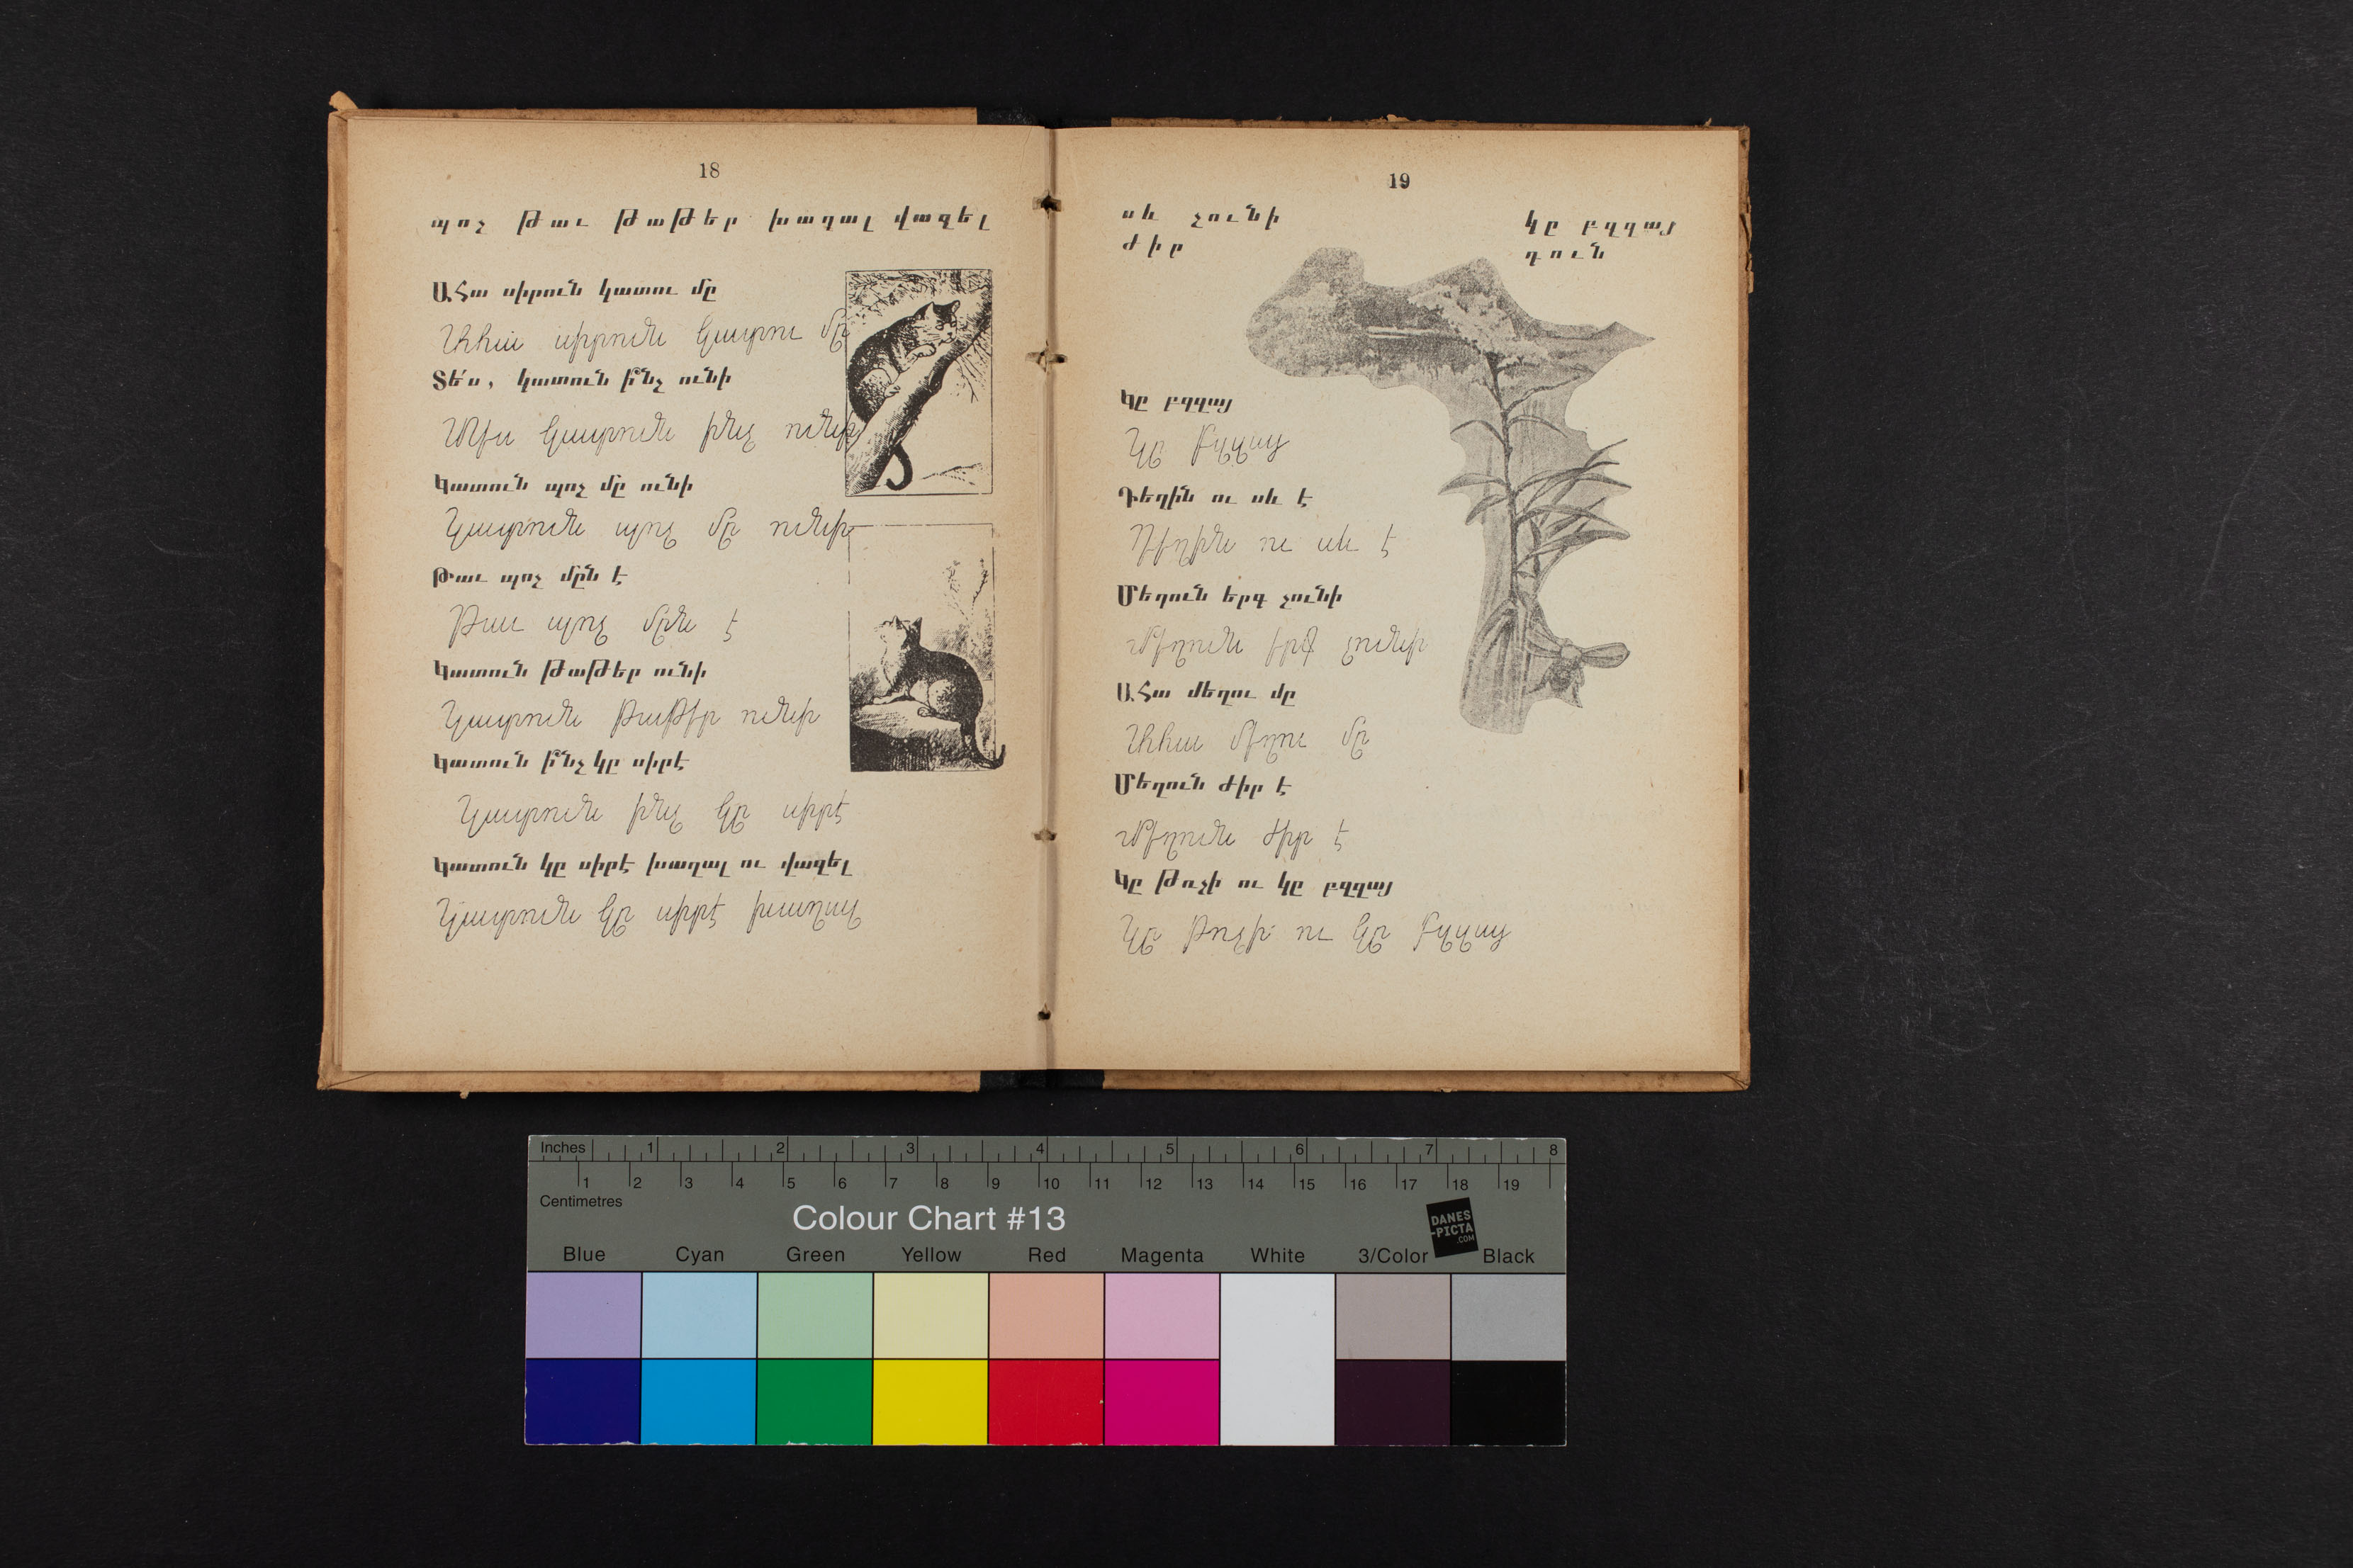 18
պոչ թաւ թաթեր խաղալ վազել
Ահա սիրուն կատու մը
Ահա սիրուն կատու մը
Տե՛ս, կատուն ի՞նչ ունի
Տես կատուն ինչ ունի
Կատուն պոչ մը ունի
Կատուն պոչ մը ունի
Թաւ պոչ մըն է
Թաւ պոչ մըն է
Կատուն թաթեր ունի
Կատուն թաթեր ունի
Կատուն ի՞նչ կը սիրէ
Կատուն ինչ կը սիրէ
Կատուն կը սիրէ խաղալ ու վազել
Կատուն կը սիրէ խաղալ
19
սև չունի կը բզզայ
ժիր դուն
Կը բզզայ
Կը բզզայ
Դեղին ու սև է
Դեղին ու սև է
Մեղուն երգ չունի
Մեղուն երգ չունի
Ահա մեղու մը
Ահա մեղու մը
Մեղուն ժիր է
Մեղուն ժիր է
Կը թռչի ու կը բզզայ
Կը թռչի ու կը բզզայ
Inches 1 2 3 4 5 6 7 8
1 2 3 4 5 6 7 8 9 10 11 12 13 14 15 16 17 18 19
Centimetres
Colour Chart #13
DANES
-PICTA
.COM
Blue Cyan Green Yellow Red Magenta White 3/Color Black